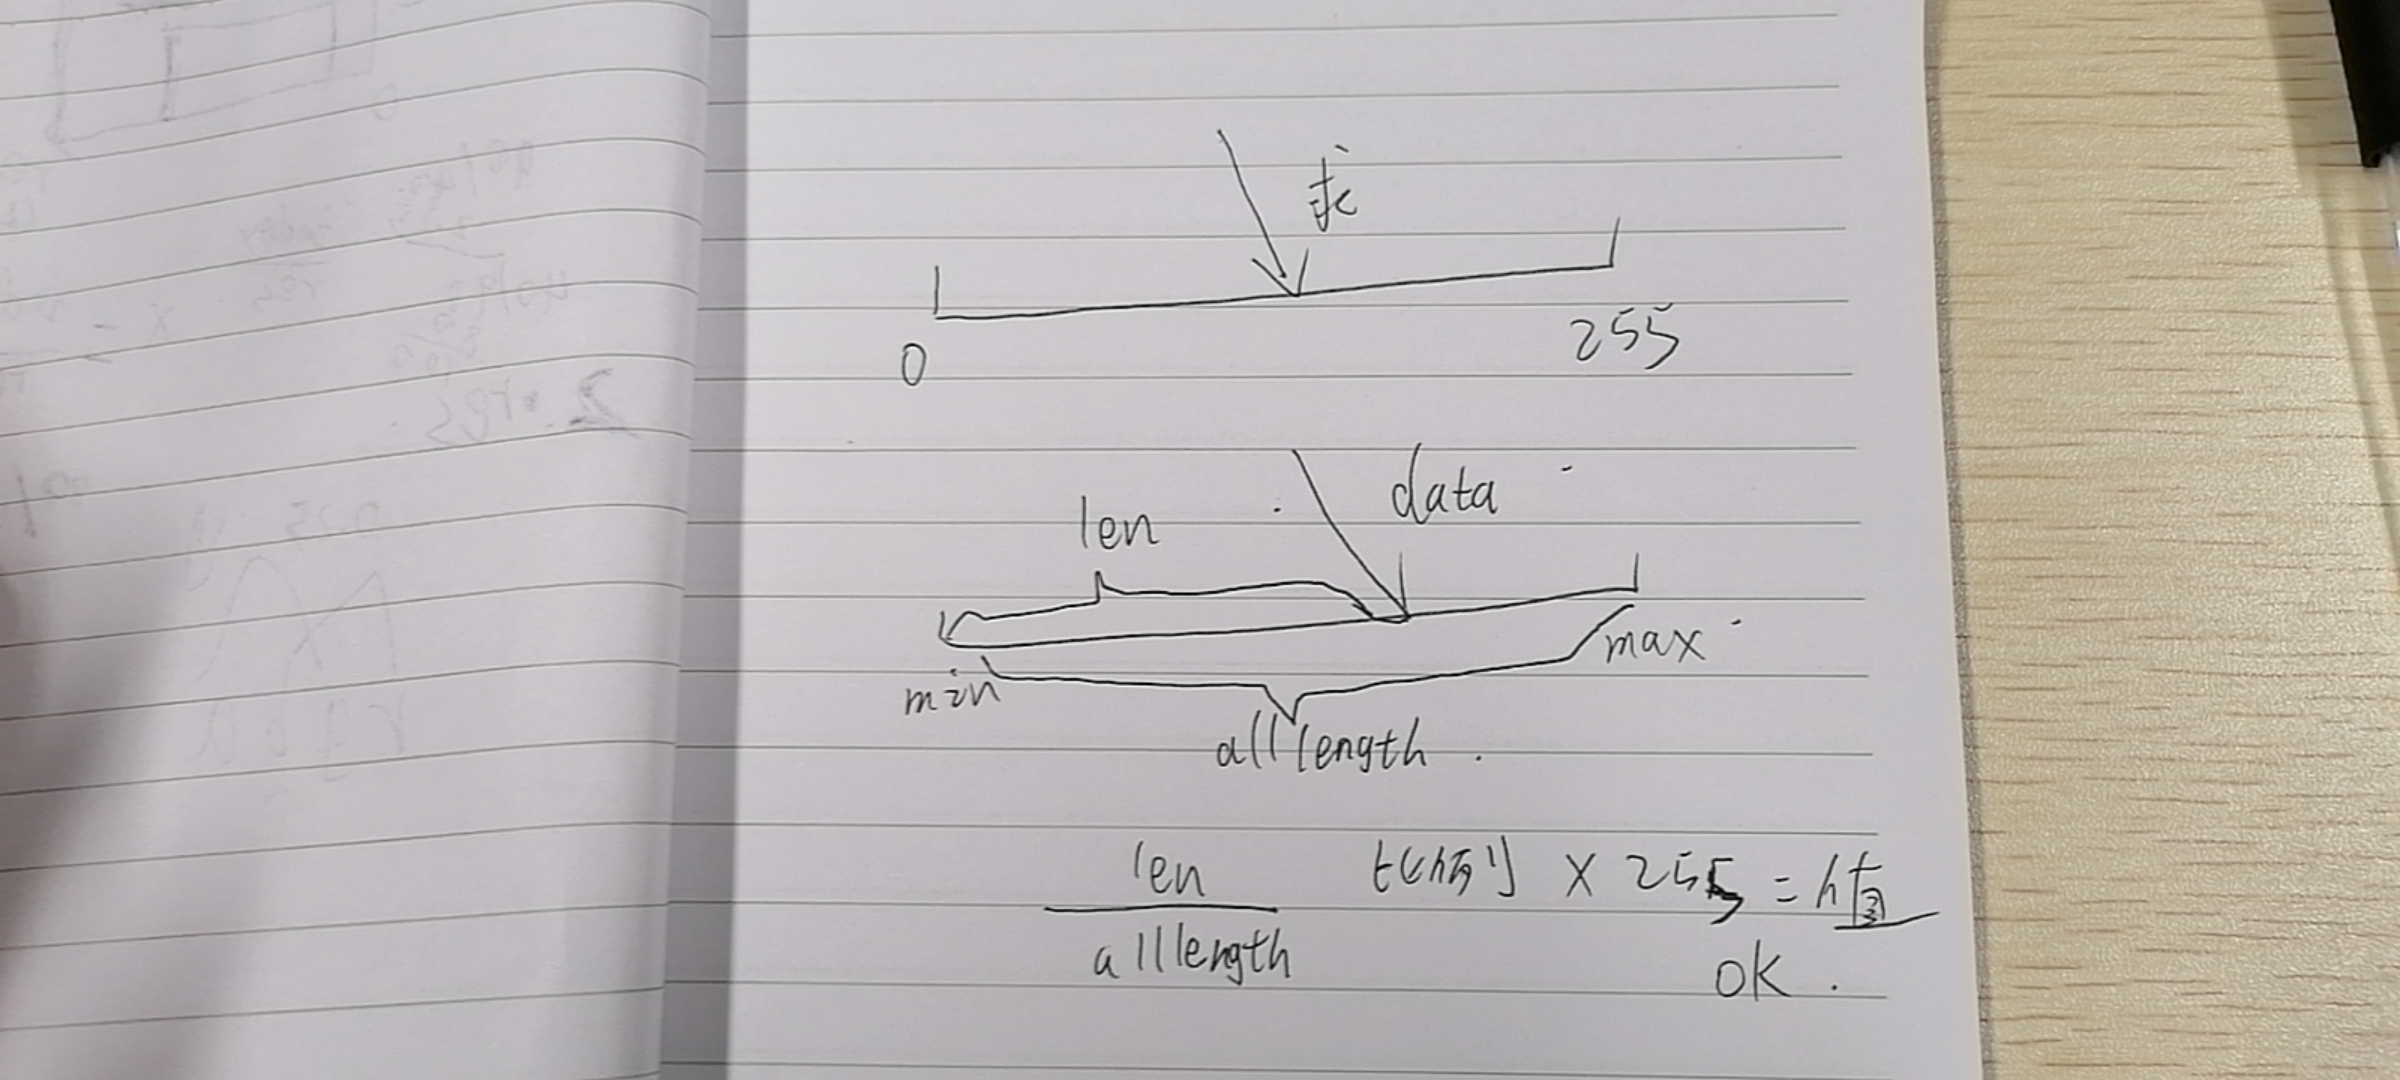 求
0 255
data
len
min max
all length .
len
alllength
比例 × 255 = 值
OK .